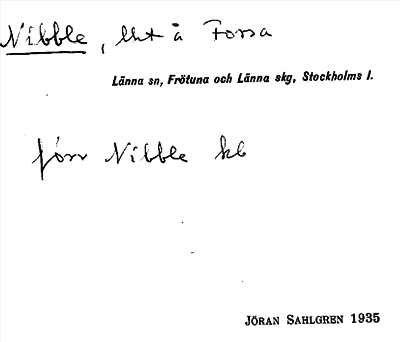 Nibble, lht å Forsa
Länna sn, Frötuna och Länna skg, Stockholms l.
förr Nibble kb
JÖRAN SAHLGREN 1935